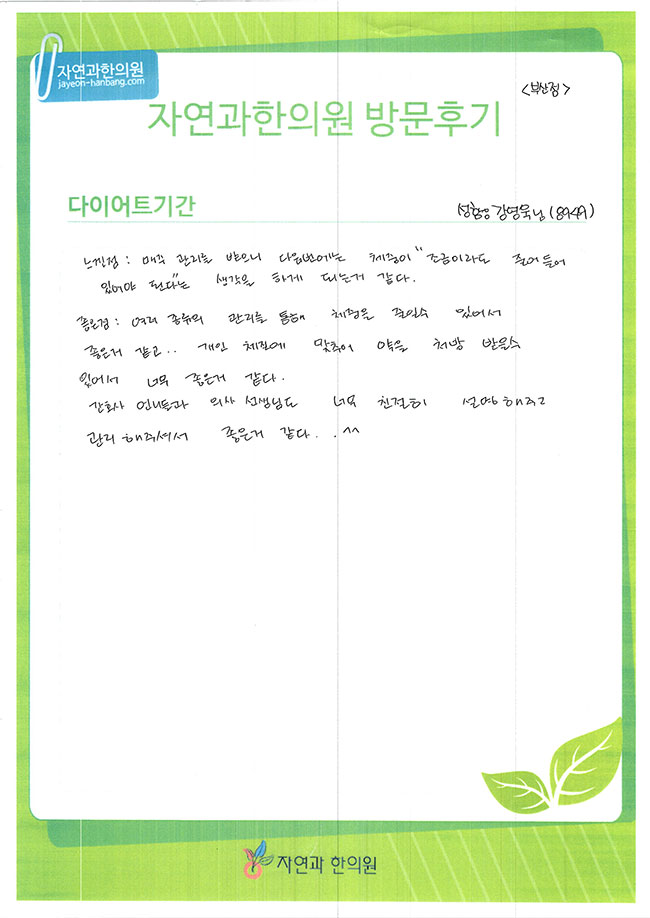 자연과한의원
jayeon-hanbang.com
<부산점>
자연과한의원 방문후기
다이어트기간
성함: 강영욱님 (8949)
느낀점 : 매주 관리를 받으니 다음번에는 체중이 "조금이라도 줄어들어
있어야 된다"는 생각을 하게 되는거 같다.
좋은점 : 여러 종류의 관리를 통해 체중을 줄일수 있어서
좋은거 같고.. 개인 체질에 맞추어 약을 처방 받을수
있어서 너무 좋은거 같다.
간호사 언니들과 의사 선생님도 너무 친절히 설명해주고
관리해주셔서 좋은거 같다. . ^^
자연과 한의원